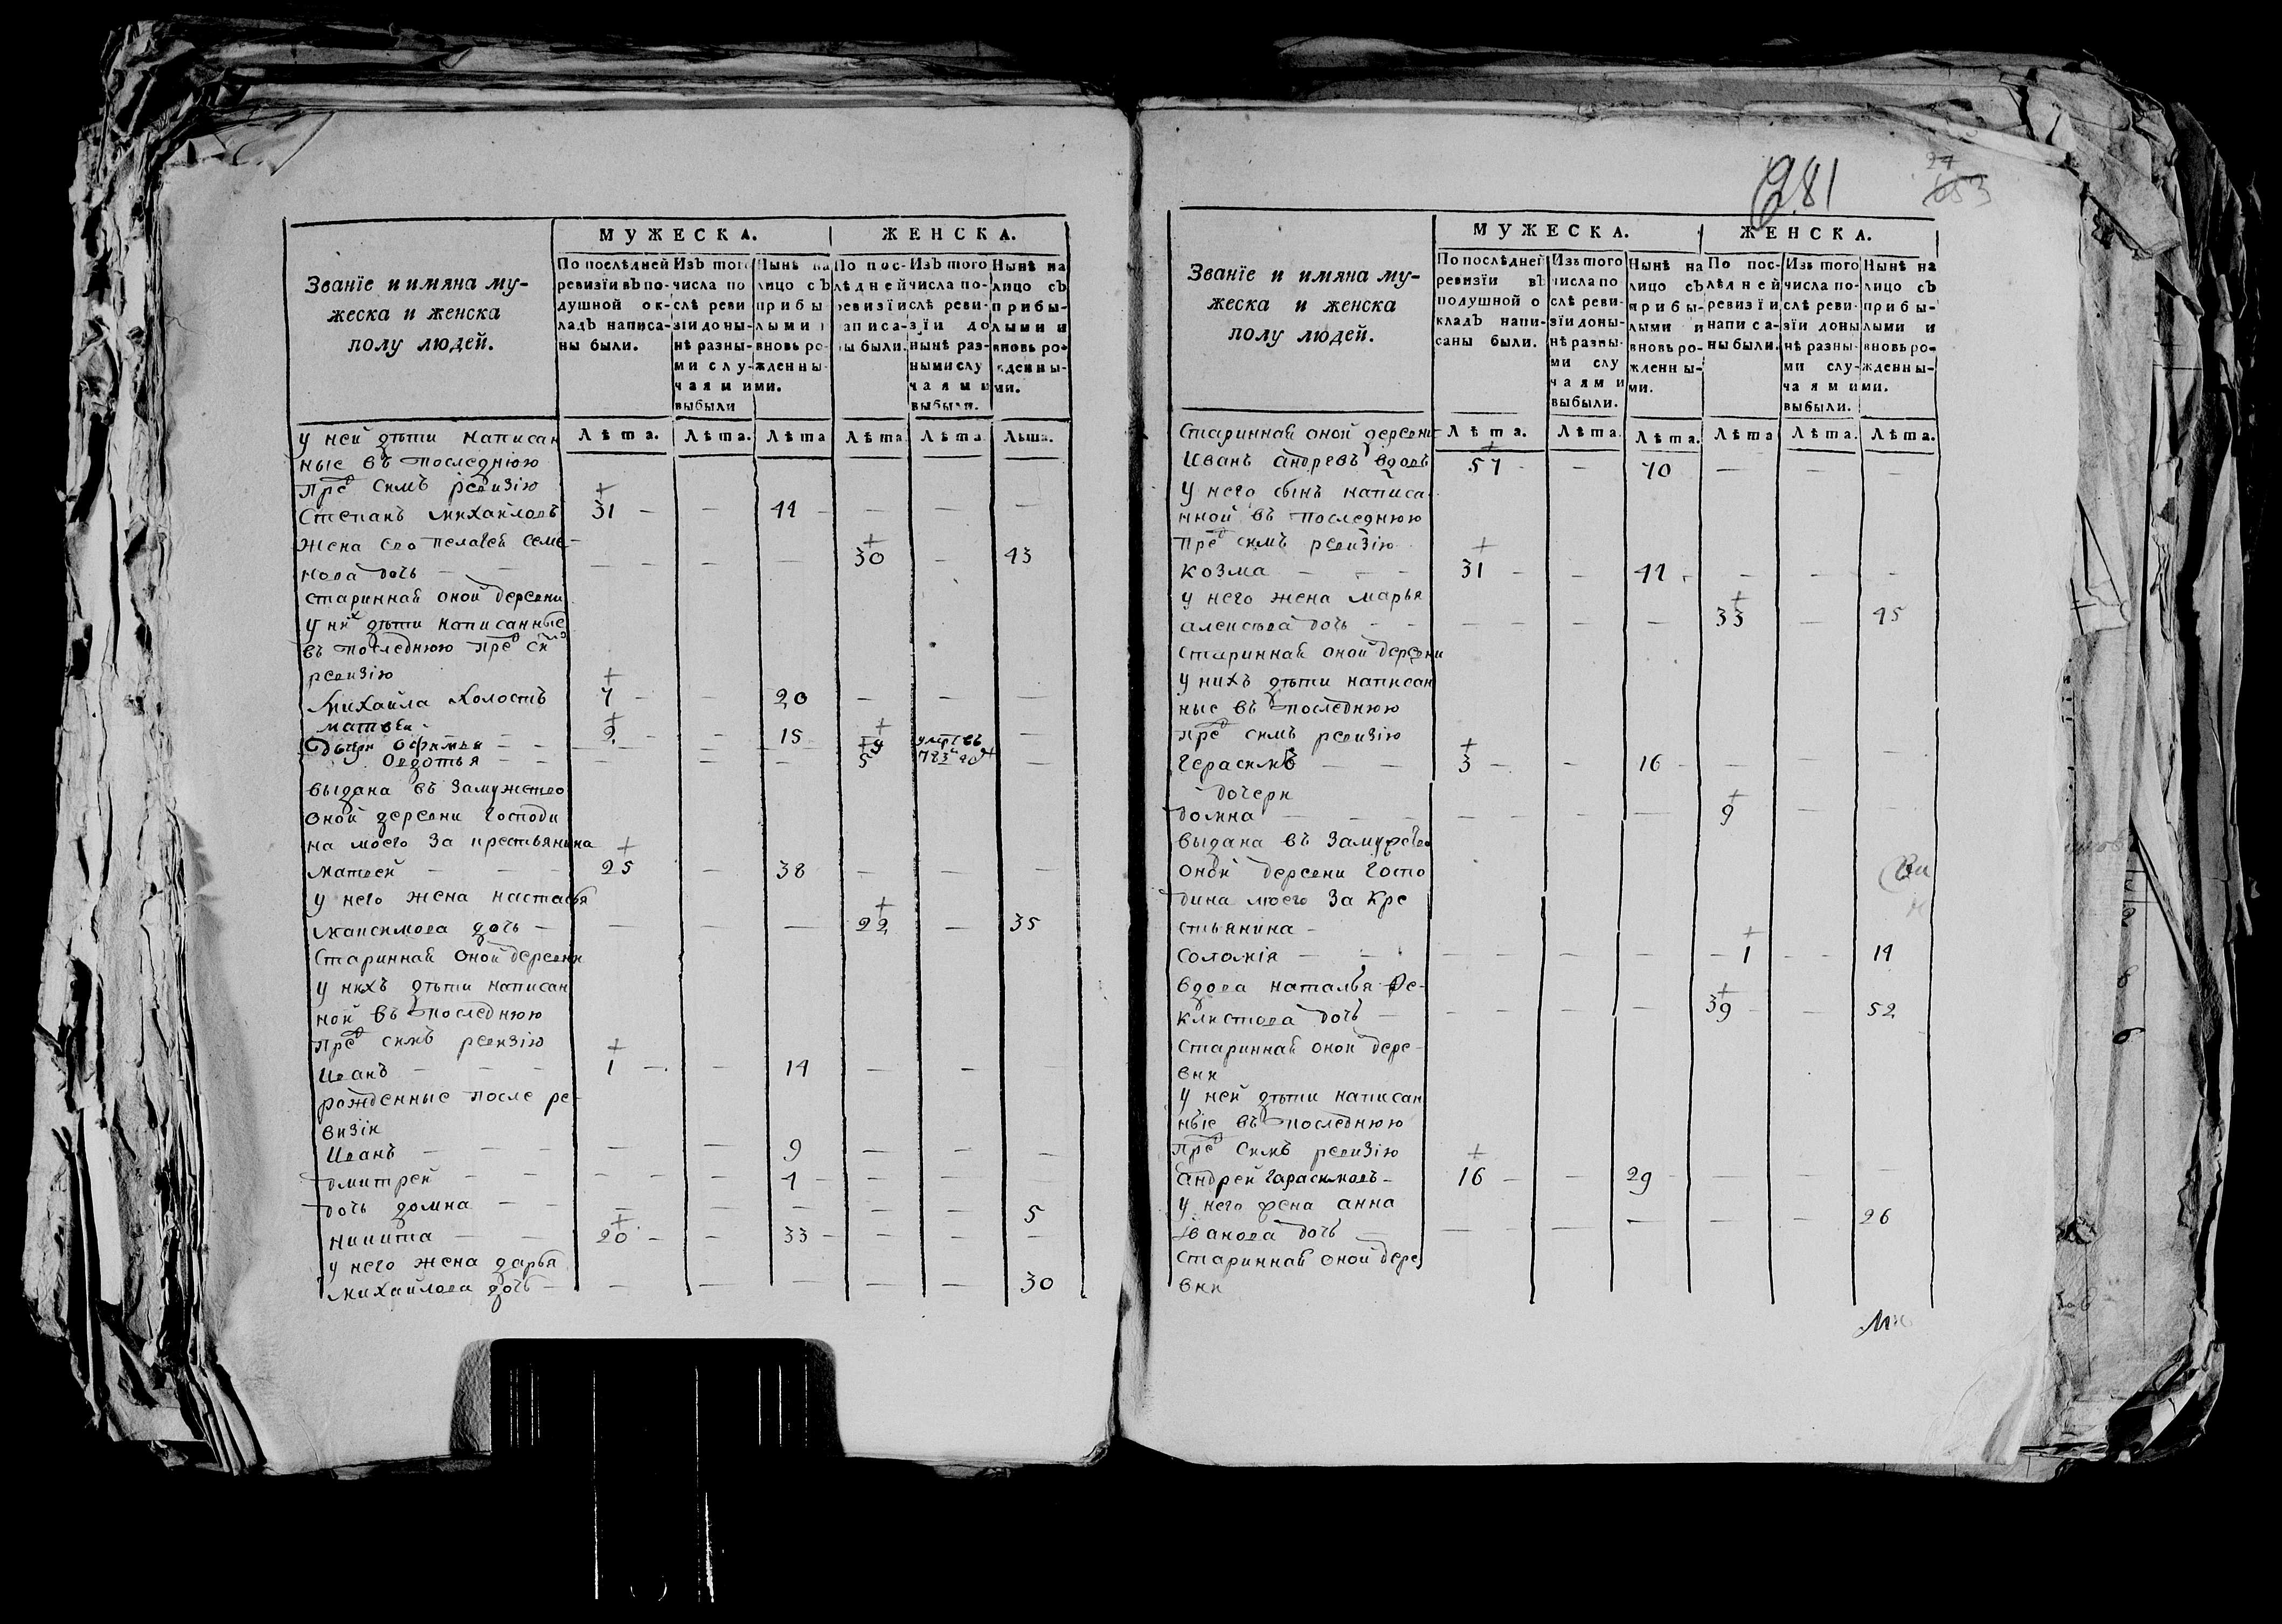 Званїе и имяна му-
жеска и женска
полу людей.
МУЖЕСКА.
ЖЕНСКА.
По послѣдней
ревизїи въ по-
душной ок-
ладъ написа-
ны были.
Изъ того
числа по
слѣ реви
зїи доны-
нѣ разны-
ми слу-
чаями
выбыли
Нынѣ на
лицо съ
прибы
лыми и
вновь ро-
жденны-
ми.
По пос-
лѣдней
ревизїи
написа-
ны были.
Изъ того
числа по-
слѣ реви-
зїи до
нынѣ раз-
ными слу
чаями
выбыли.
Нынѣ на
лицо съ
прибы-
лыми и
вновь ро-
жденны-
ми.
Лѣта. Лѣта. Лѣта Лѣта Лѣта Лѣта.
у ней дѣти написан
ные въ последнюю
пред симъ ревизию
Степанъ михайловъ 31 — — 44 — — — —
жена ево пелагея семе-
нова дочь — — — — — 30 — 43
стариннай оной деревни
у них дѣти написанные
въ последнюю пред сим
ревизию
михайла холостъ 7 — — 20 — — —
матвей — 2 — 15 —
Дочери офимья — — — — — — 14 умре въ
783м году
овдотья — — — — — 5 —
выдана въ замужство
оной деревни господи
на моего за крестьянина
матвей — — — 25 — 38 — — —
у него жена настасья
максимова дочь — — — — 22 — 35
стариннай оной деревни
у нихъ дѣти написан
ной въ последнюю
пред симъ ревизию
иванъ — — — 1 — — 14 — —
рожденные после ре-
визии
иванъ — — — — — 9 — — —
дмитрей — — — — — 4 — — —
дочь домна — — — — — — — 5
никита — — 20 — — 33 — — — —
у него жена дарья
михайлова дочь — — — — — — 30
281
27
653
Званїе и имяна му-
жеска и женска
полу людей.
МУЖЕСКА.
ЖЕНСКА.
По послѣдней
ревизїи въ
подушной о
кладъ напи-
саны были.
Изъ того
числа по
слѣ реви-
зїи доны-
нѣ разны-
ми слу
чаями
выбыли.
Нынѣ на
лицо съ
прибы-
лыми и
вновь ро-
жденны-
ми.
По пос-
лѣдней
ревизїи
написа-
ны были.
Изъ того
числа по-
слѣ реви-
зїи доны
нѣ разны-
ми слу-
чаями
выбыли.
Нынѣ на
лицо съ
прибы-
лыми и
вновь ро-
жденны-
ми.
Лѣта. Лѣта. Лѣта. Лѣта Лѣта. Лѣта.
стариннай оной деревни
Иванъ андревъ вдовъ 57 — — 70 — — —
у него сынъ написа
нной въ последнюю
пред симъ ревизию
козма — — — 31 — — 44 — — —
у него жена марья
алексѣва дочь — — — — — — 33 — 45
стариннай оной деревни
у нихъ дѣти написан
ные въ последнюю
пред симъ ревизию
герасимъ — — 3 — — 16 — — — —
дочери
домна — — — — — — 9 — —
выдана въ замужство
оной деревни госпо
дина моего за кре
стьянина —
соломия — — — — — — 1 — — 14
вдова наталья фе-
клистова дочь — — — — — 39 — — 52
стариннай оной дере-
вни
у ней дѣти написан
ные въ последнюю
пред симъ ревизию
андрей гарасимовъ — 16 — — 29 — — — —
у него жена анна
иванова дочь — — — — — — 26
стариннай оной дере
вни